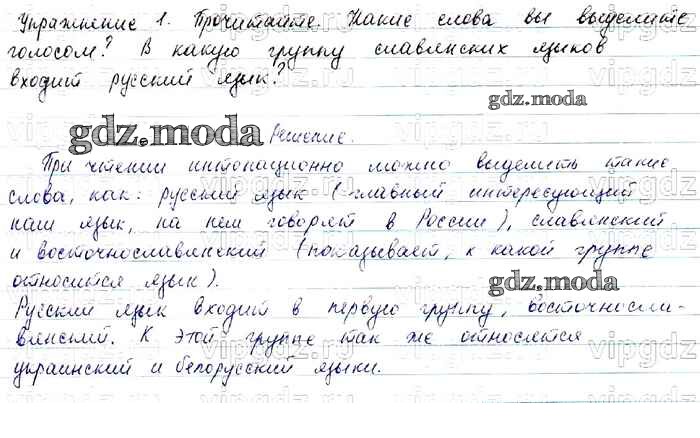 Упражнение 1. Прочитайте. Какие слова вы выделите
голосом? В какую группу славянских языков
входит русский язык?
gdz.moda Решение.
При чтении интонационно можно выделить такие
слова, как: русский язык (главный интересующий
наш язык, на нем говорят в России), славянский
и восточнославянский (показывает, к какой группе
относится язык).
gdz.moda
Русский язык входит в первую группу, восточносла-
вянский. К этой группе так же относятся
украинский и белорусский языки.
vipgdz.ru